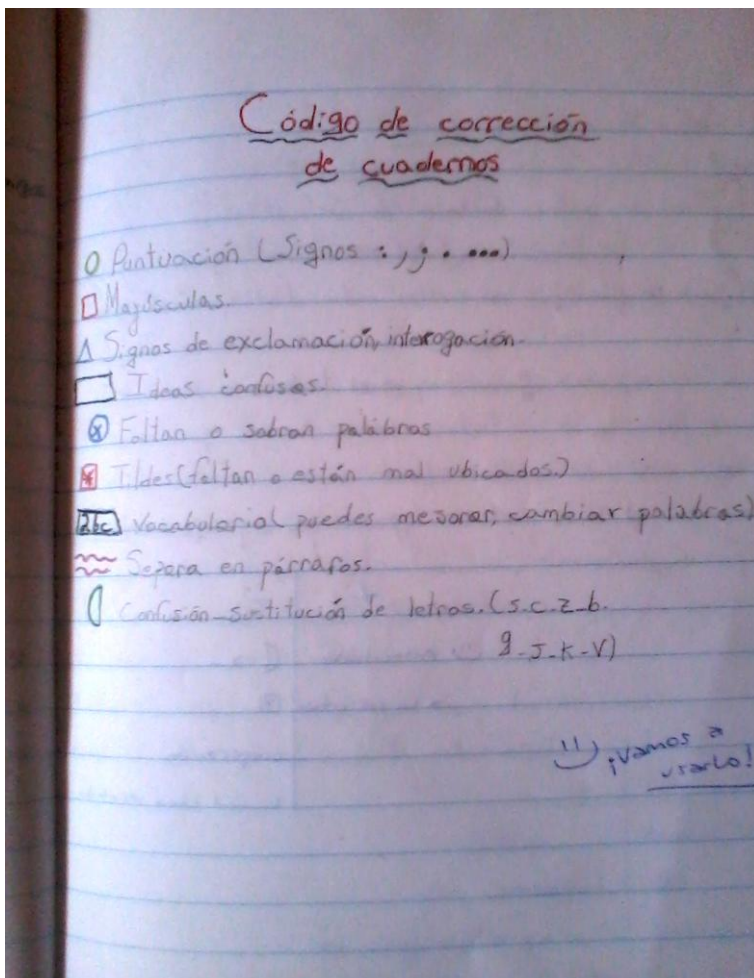 Código de corrección
de cuadernos
Puntuación (Signos : , ; . ...)
Mayúsculas.
Signos de exclamación, interrogación.
Ideas confusas.
Faltan o sobran palábras
Tildes (faltan o están mal ubicados.)
Abc Vocabulario( puedes mejorar, cambiar palabras)
Separa en párrafos.
Confusión-sustitución de letras. (s.c.z_b.
g-J-K-V)
¡Vamos a
usarlo!